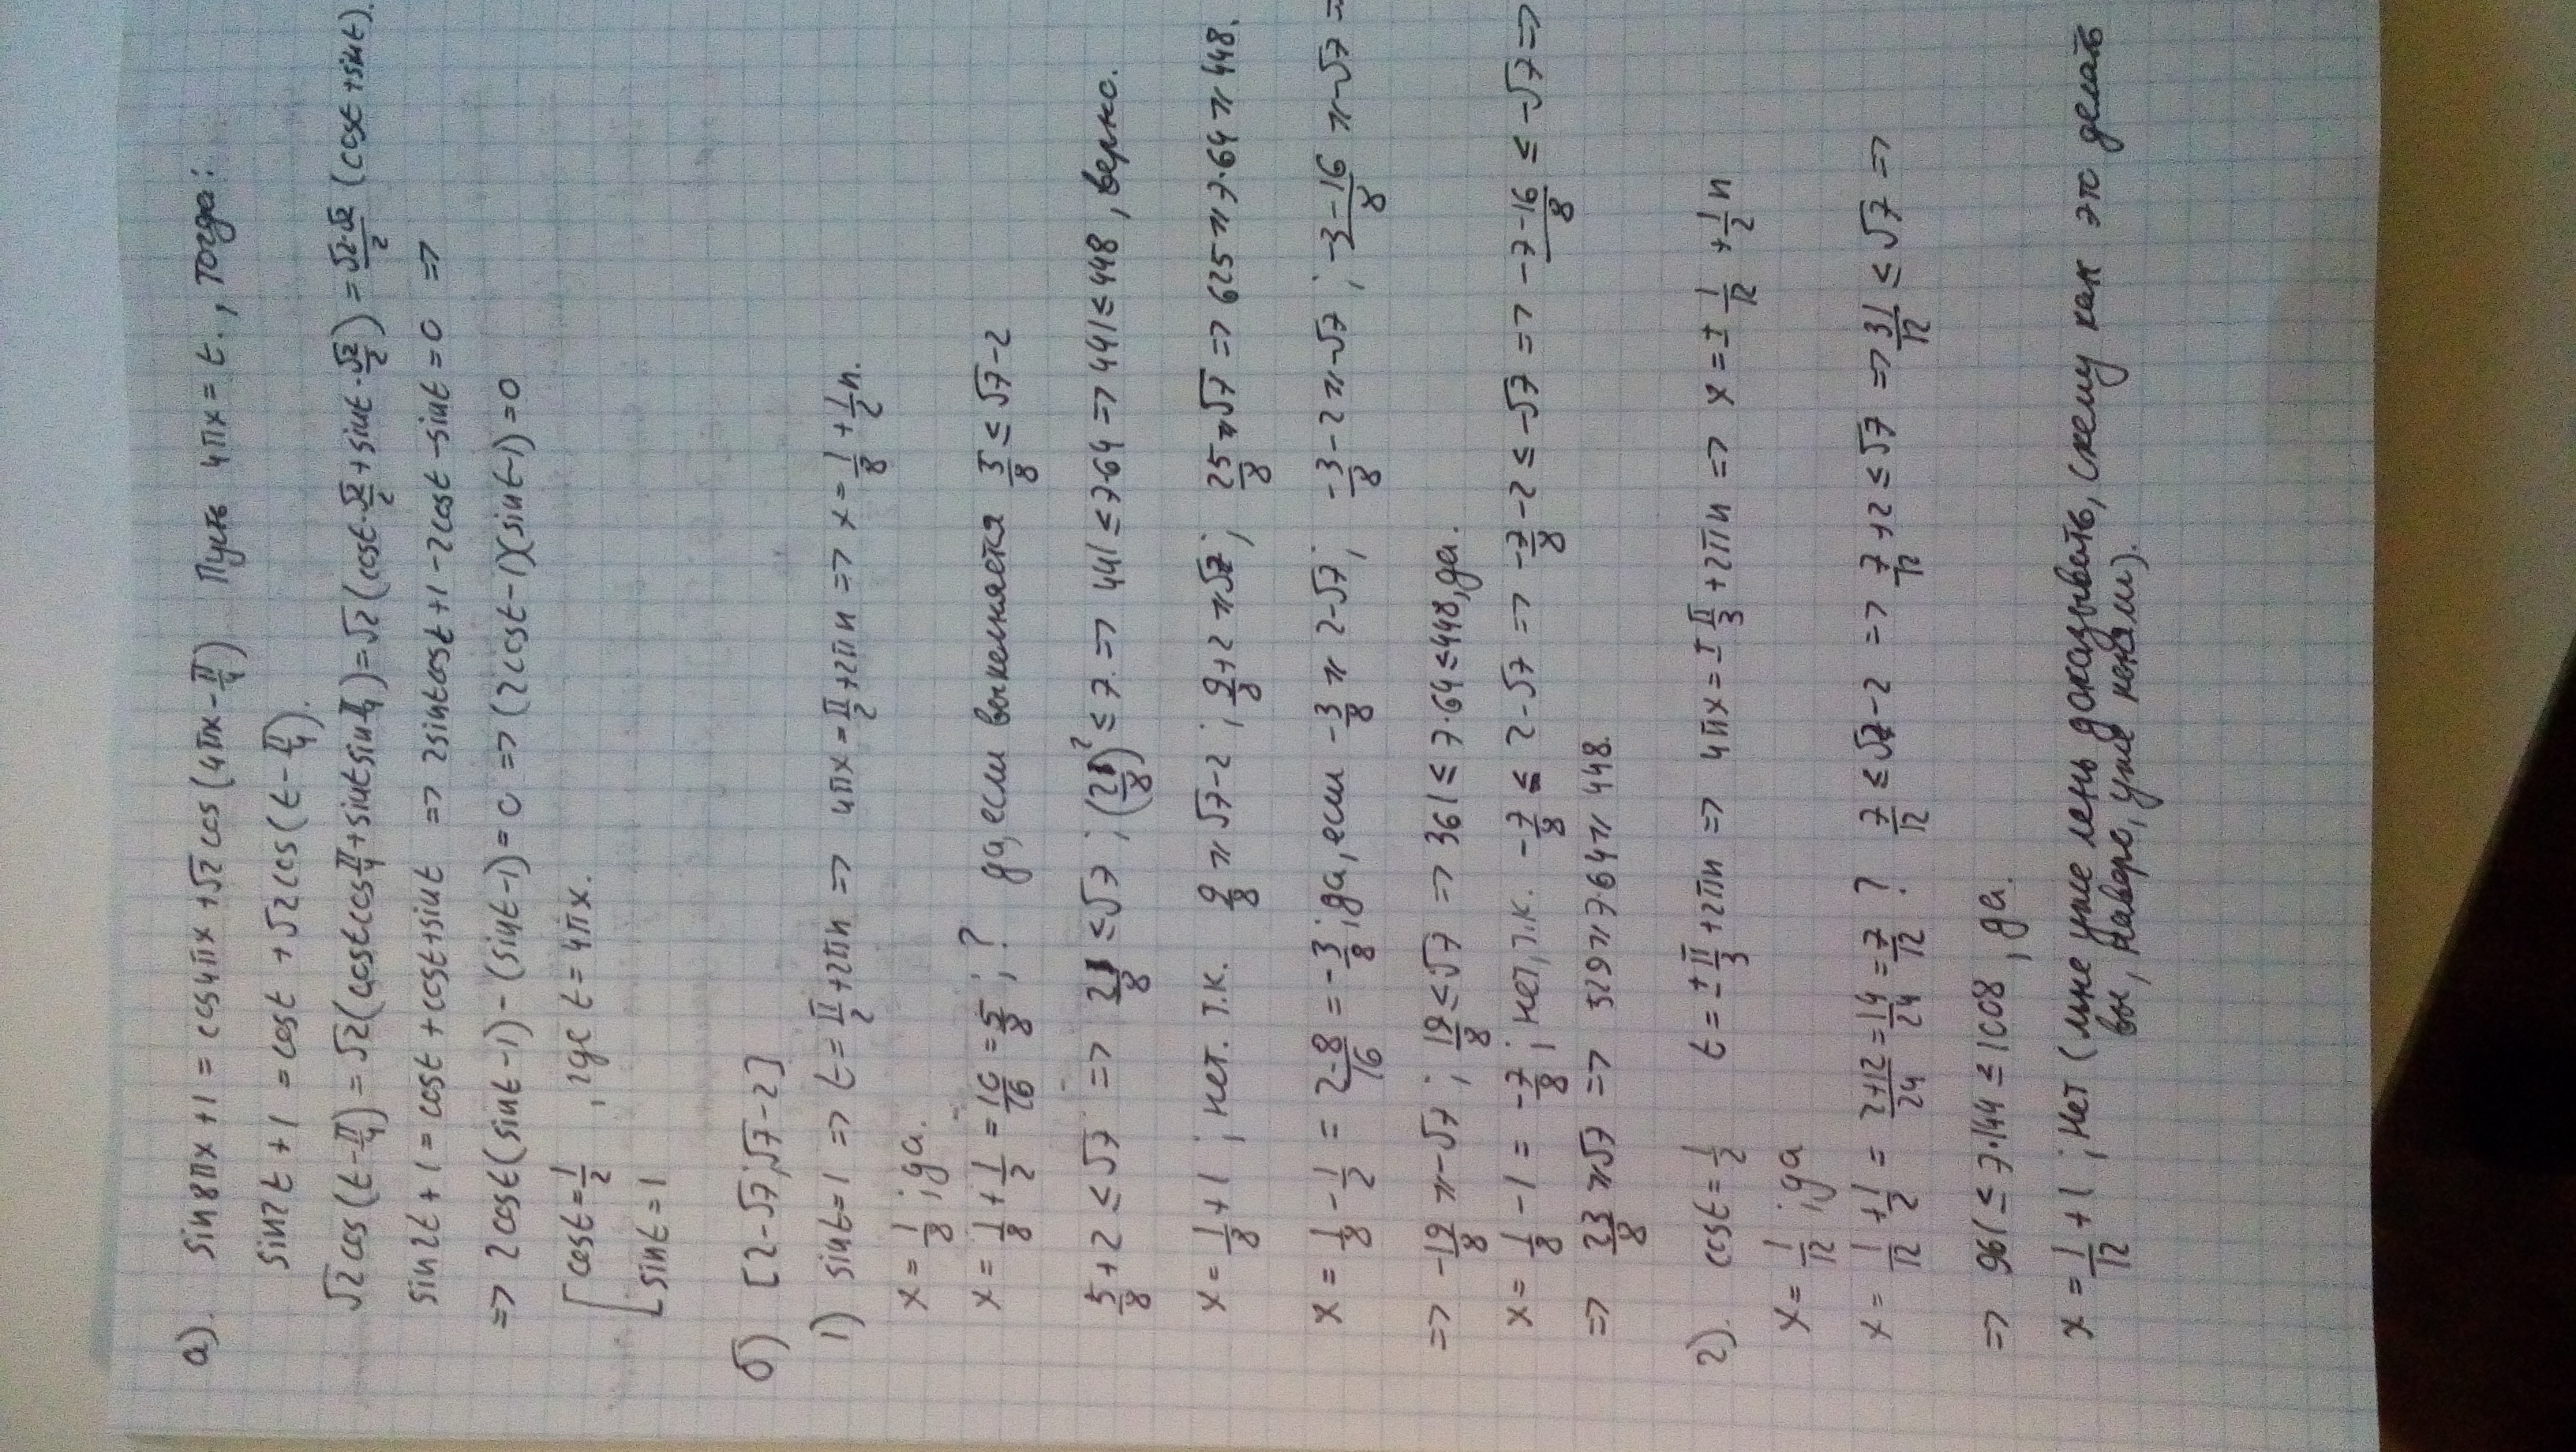 а). sin8πx + 1 = cos4πx + √2 cos(4πx - π/4) Пусть 4πx = t., тогда:
sin2t + 1 = cost + √2 cos(t - π/4).
√2 cos(t - π/4) = √2(cost cos π/4 + sint sin π/4) = √2(cost · √2/2 + sint · √2/2) = √2·√2/2 (cost + sint).
sin2t + 1 = cost + cost + sint => 2sintcost + 1 - 2cost - sint = 0 =>
=> 2cost(sint - 1) - (sint - 1) = 0 => (2cost - 1)(sint - 1) = 0
[cost = 1/2 , где t = 4πx.
[sint = 1
б) [2-√7; √7-2]
1) sint = 1 => t = π/2 + 2πn => 4πx = π/2 + 2πn => x = 1/8 + 1/2 n.
x = 1/8; да.
x = 1/8 + 1/2 = 10/16 = 5/8; ? да, если выполняется 5/8 ≤ √7-2
5/8 + 2 ≤ √7 => 21/8 ≤ √7; (21/8)² ≤ 7. => 441 ≤ 7·64 => 441 ≤ 448, верно.
x = 1/8 + 1; нет. т.к. 9/8 > √7-2; 9/8 + 2 > √7; 25/8 > √7 => 625 > 7·64 > 448.
x = 1/8 - 1/2 = 2-8/16 = -3/8; да, если -3/8 > 2-√7; -3/8 - 2 > -√7; -3-16/8 > -√7 =
=> -19/8 > -√7; 19/8 ≤ √7 => 361 ≤ 7·64 ≤ 448, да.
x = 1/8 - 1 = -7/8; нет, т.к. -7/8 ≤ 2-√7 => -7/8 - 2 ≤ -√7 => -7-16/8 ≤ -√7 =>
=> 23/8 > √7 => 529 > 7·64 > 448.
2). cost = 1/2 t = ± π/3 + 2πn => 4πx = ± π/3 + 2πn => x = ± 1/12 + 1/2 n
x = 1/12; да
x = 1/12 + 1/2 = 2+12/24 = 14/24 = 7/12 ? 7/12 ≤ √7-2 => 7/12 + 2 ≤ √7 => 31/12 ≤ √7 =>
=> 961 ≤ 7·144 ≤ 1008, да.
x = 1/12 + 1; нет (мне уже лень доказывать, схему как это делать
вы, наверо, уже поняли).